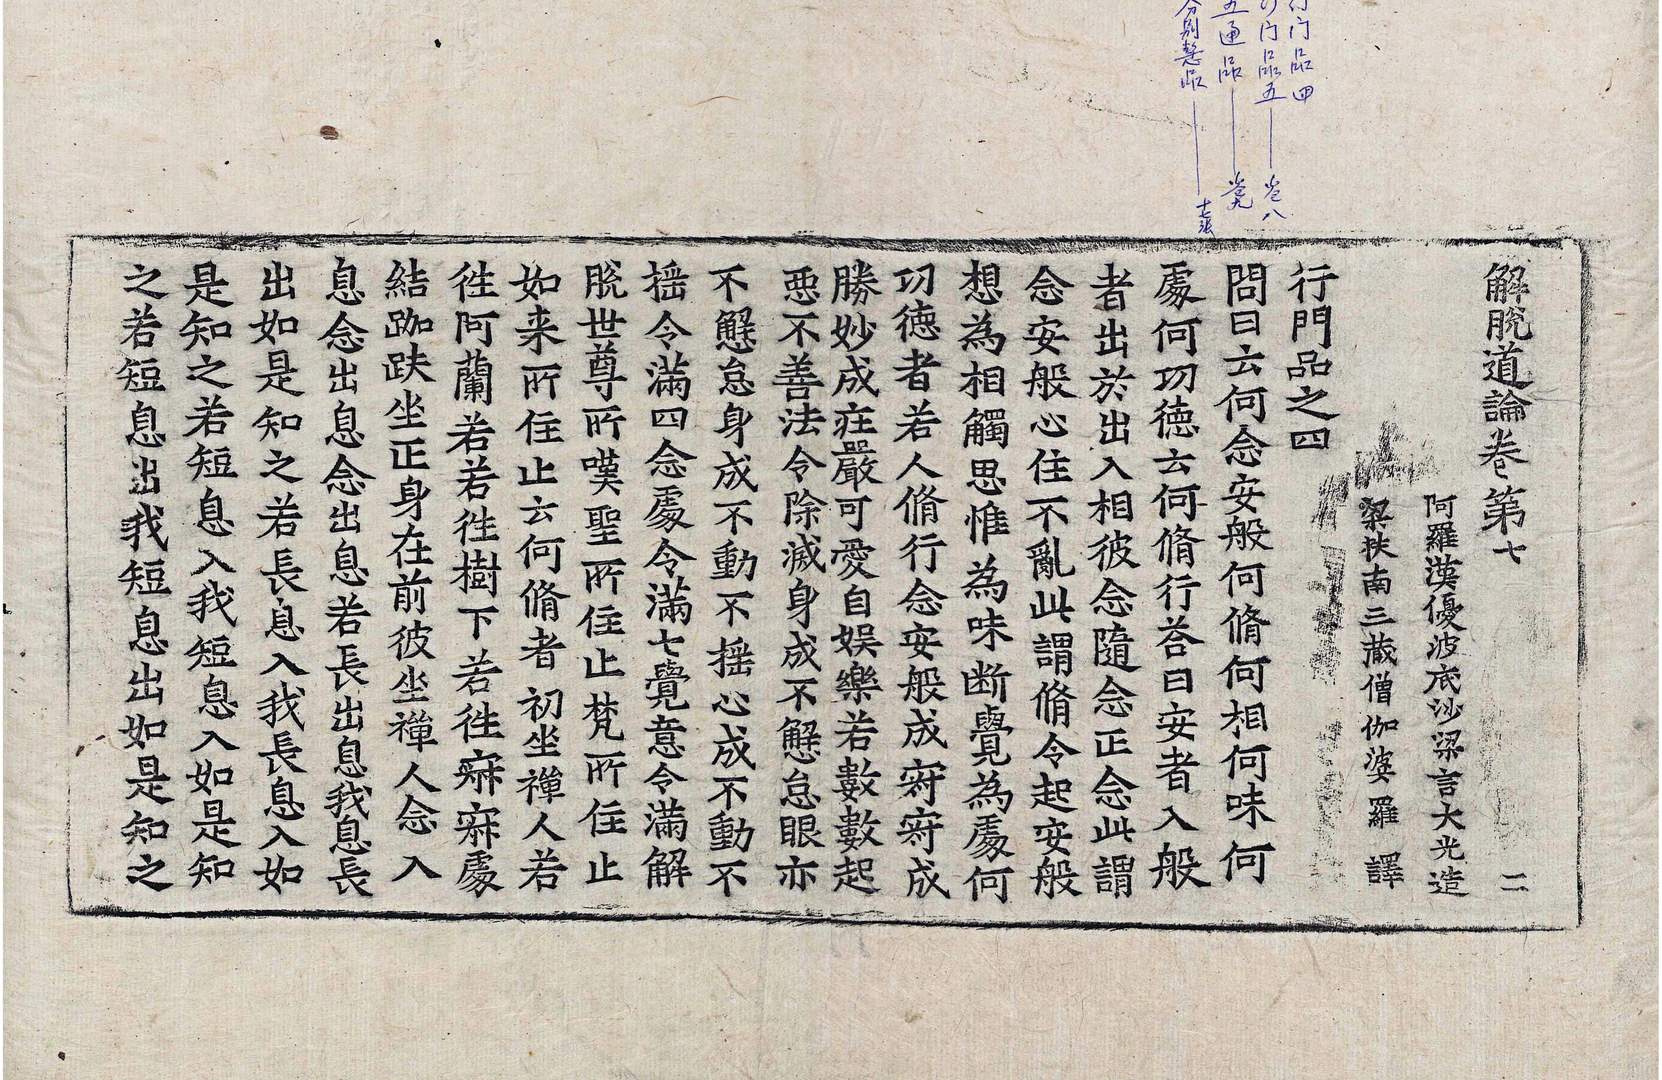 行门品四
门品五 卷八
五通品 卷九
分别慧品 十七張
解脫道論卷第七 二
阿羅漢優波底沙梁言大光造
梁扶南三藏僧伽婆羅譯
行門品之四
問曰云何念安般何脩何相何味何
處何功德云何脩行荅曰安者入般
者出於出入相彼念隨念正念此謂
念安般心住不亂此謂脩令起安般
想為相觸思惟為味斷覺為處何
功德者若人脩行念安般成寂寂成
勝妙成莊嚴可愛自娱樂若數數起
惡不善法令除滅身成不懈怠眼亦
不懈怠身成不動不揺心成不動不
揺令滿四念處令滿七覺意令滿解
脫世尊所嘆聖所住止梵所住止
如来所住止云何脩者初坐禪人若
徃阿蘭若若徃樹下若徃寂寂處
結跏趺坐正身在前彼坐禪人念入
息念出息念出息若長出息我息長
出如是知之若長息入我長息入如
是知之若短息入我短息入如是知
之若短息出我短息出如是知之